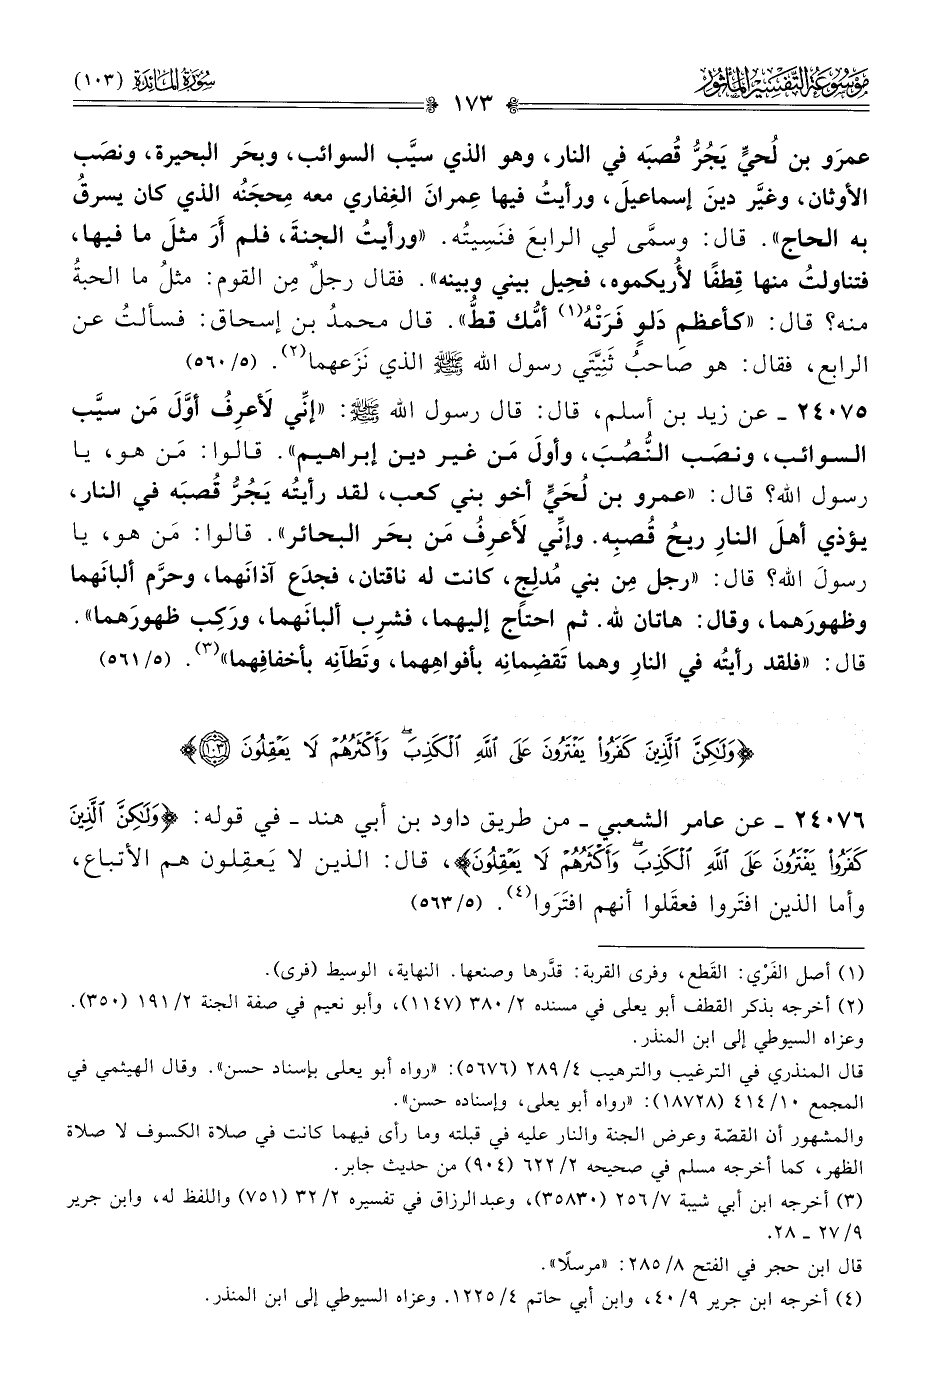 موسوعة التفسير المأثور
سورة المائدة (١٠٣)
١٧٣
عمرَو بن لُحيٍّ يَجُرُّ قُصبَه في النار، وهو الذي سيَّب السوائب، وبحَر البحيرة، ونصَب
الأوثان، وغيَّر دينَ إسماعيلَ، ورأيتُ فيها عِمرانَ الغِفاري معه مِحجَنُه الذي كان يسرقُ
به الحاج». قال: وسمَّى لي الرابعَ فنَسِيتُه. «ورأيتُ الجنةَ، فلم أَرَ مثلَ ما فيها،
فتناولتُ منها قِطفًا لأُريكموه، فحِيل بيني وبينه». فقال رجلٌ مِن القوم: مثلُ ما الحبةُ
منه؟ قال: «كأعظمِ دَلوٍ فَرَتْهُ(١) أمُّك قطُّ». قال محمدُ بن إسحاق: فسألتُ عن
الرابع، فقال: هو صَاحبُ ثَنِيَّتَي رسول الله ﷺ الذي نَزَعهما(٢). (٥٦٠/٥)
٢٤٠٧٥ ـ عن زيد بن أسلم، قال: قال رسول الله ﷺ: «إنِّي لَأعرِفُ أوَّلَ مَن سيَّب
السوائب، ونصَب النُّصُبَ، وأولَ مَن غير دين إبراهيم». قالوا: مَن هو، يا
رسول الله؟ قال: «عمرو بن لُحَيٍّ أخو بني كعب، لقد رأيتُه يَجُرُّ قُصبَه في النار،
يؤذي أهلَ النارِ ريحُ قُصبِه. وإنِّي لَأعرِفُ مَن بحَر البحائر». قالوا: مَن هو، يا
رسولَ الله؟ قال: «رجل مِن بني مُدلِجٍ، كانت له ناقتان، فجدَع آذانَهما، وحرَّم ألبانَهما
وظهورَهما، وقال: هاتان لله. ثم احتاج إليهما، فشرِب ألبانَهما، ورَكِب ظهورَهما».
قال: «فلقد رأيتُه في النارِ وهما تَقضِمانِه بأفواهِهما، وتَطآنِه بأخفافِهما»(٣). (٥٦١/٥)
﴿وَلَٰكِنَّ ٱلَّذِينَ كَفَرُوا۟ يَفْتَرُونَ عَلَى ٱللَّهِ ٱلْكَذِبَ ۖ وَأَكْثَرُهُمْ لَا يَعْقِلُونَ ١٠٣﴾
٢٤٠٧٦ ـ عن عامر الشعبي ـ من طريق داود بن أبي هند ـ في قوله: ﴿وَلَٰكِنَّ ٱلَّذِينَ
كَفَرُوا۟ يَفْتَرُونَ عَلَى ٱللَّهِ ٱلْكَذِبَ ۖ وَأَكْثَرُهُمْ لَا يَعْقِلُونَ﴾، قال: الذين لا يَعقِلون هم الأتباع،
وأما الذين افتَروا فعقَلوا أنهم افتَرَوا(٤). (٥٦٣/٥)
(١) أصل الفَرْي: القَطع، وفرى القربة: قدَّرها وصنعها. النهاية، الوسيط (فرى).
(٢) أخرجه بذكر القطف أبو يعلى في مسنده ٣٨٠/٢ (١١٤٧)، وأبو نعيم في صفة الجنة ١٩١/٢ (٣٥٠).
وعزاه السيوطي إلى ابن المنذر.
قال المنذري في الترغيب والترهيب ٢٨٩/٤ (٥٦٧٦): «رواه أبو يعلى بإسناد حسن». وقال الهيثمي في
المجمع ٤١٤/١٠ (١٨٧٢٨): «رواه أبو يعلى، وإسناده حسن».
والمشهور أن القصّة وعرض الجنة والنار عليه في قبلته وما رأى فيهما كانت في صلاة الكسوف لا صلاة
الظهر، كما أخرجه مسلم في صحيحه ٦٢٢/٢ (٩٠٤) من حديث جابر.
(٣) أخرجه ابن أبي شيبة ٢٥٦/٧ (٣٥٨٣٠)، وعبدالرزاق في تفسيره ٣٢/٢ (٧٥١) واللفظ له، وابن جرير
٢٧/٩ ـ ٢٨.
قال ابن حجر في الفتح ٢٨٥/٨: «مرسلًا».
(٤) أخرجه ابن جرير ٤٠/٩، وابن أبي حاتم ١٢٢٥/٤. وعزاه السيوطي إلى ابن المنذر.